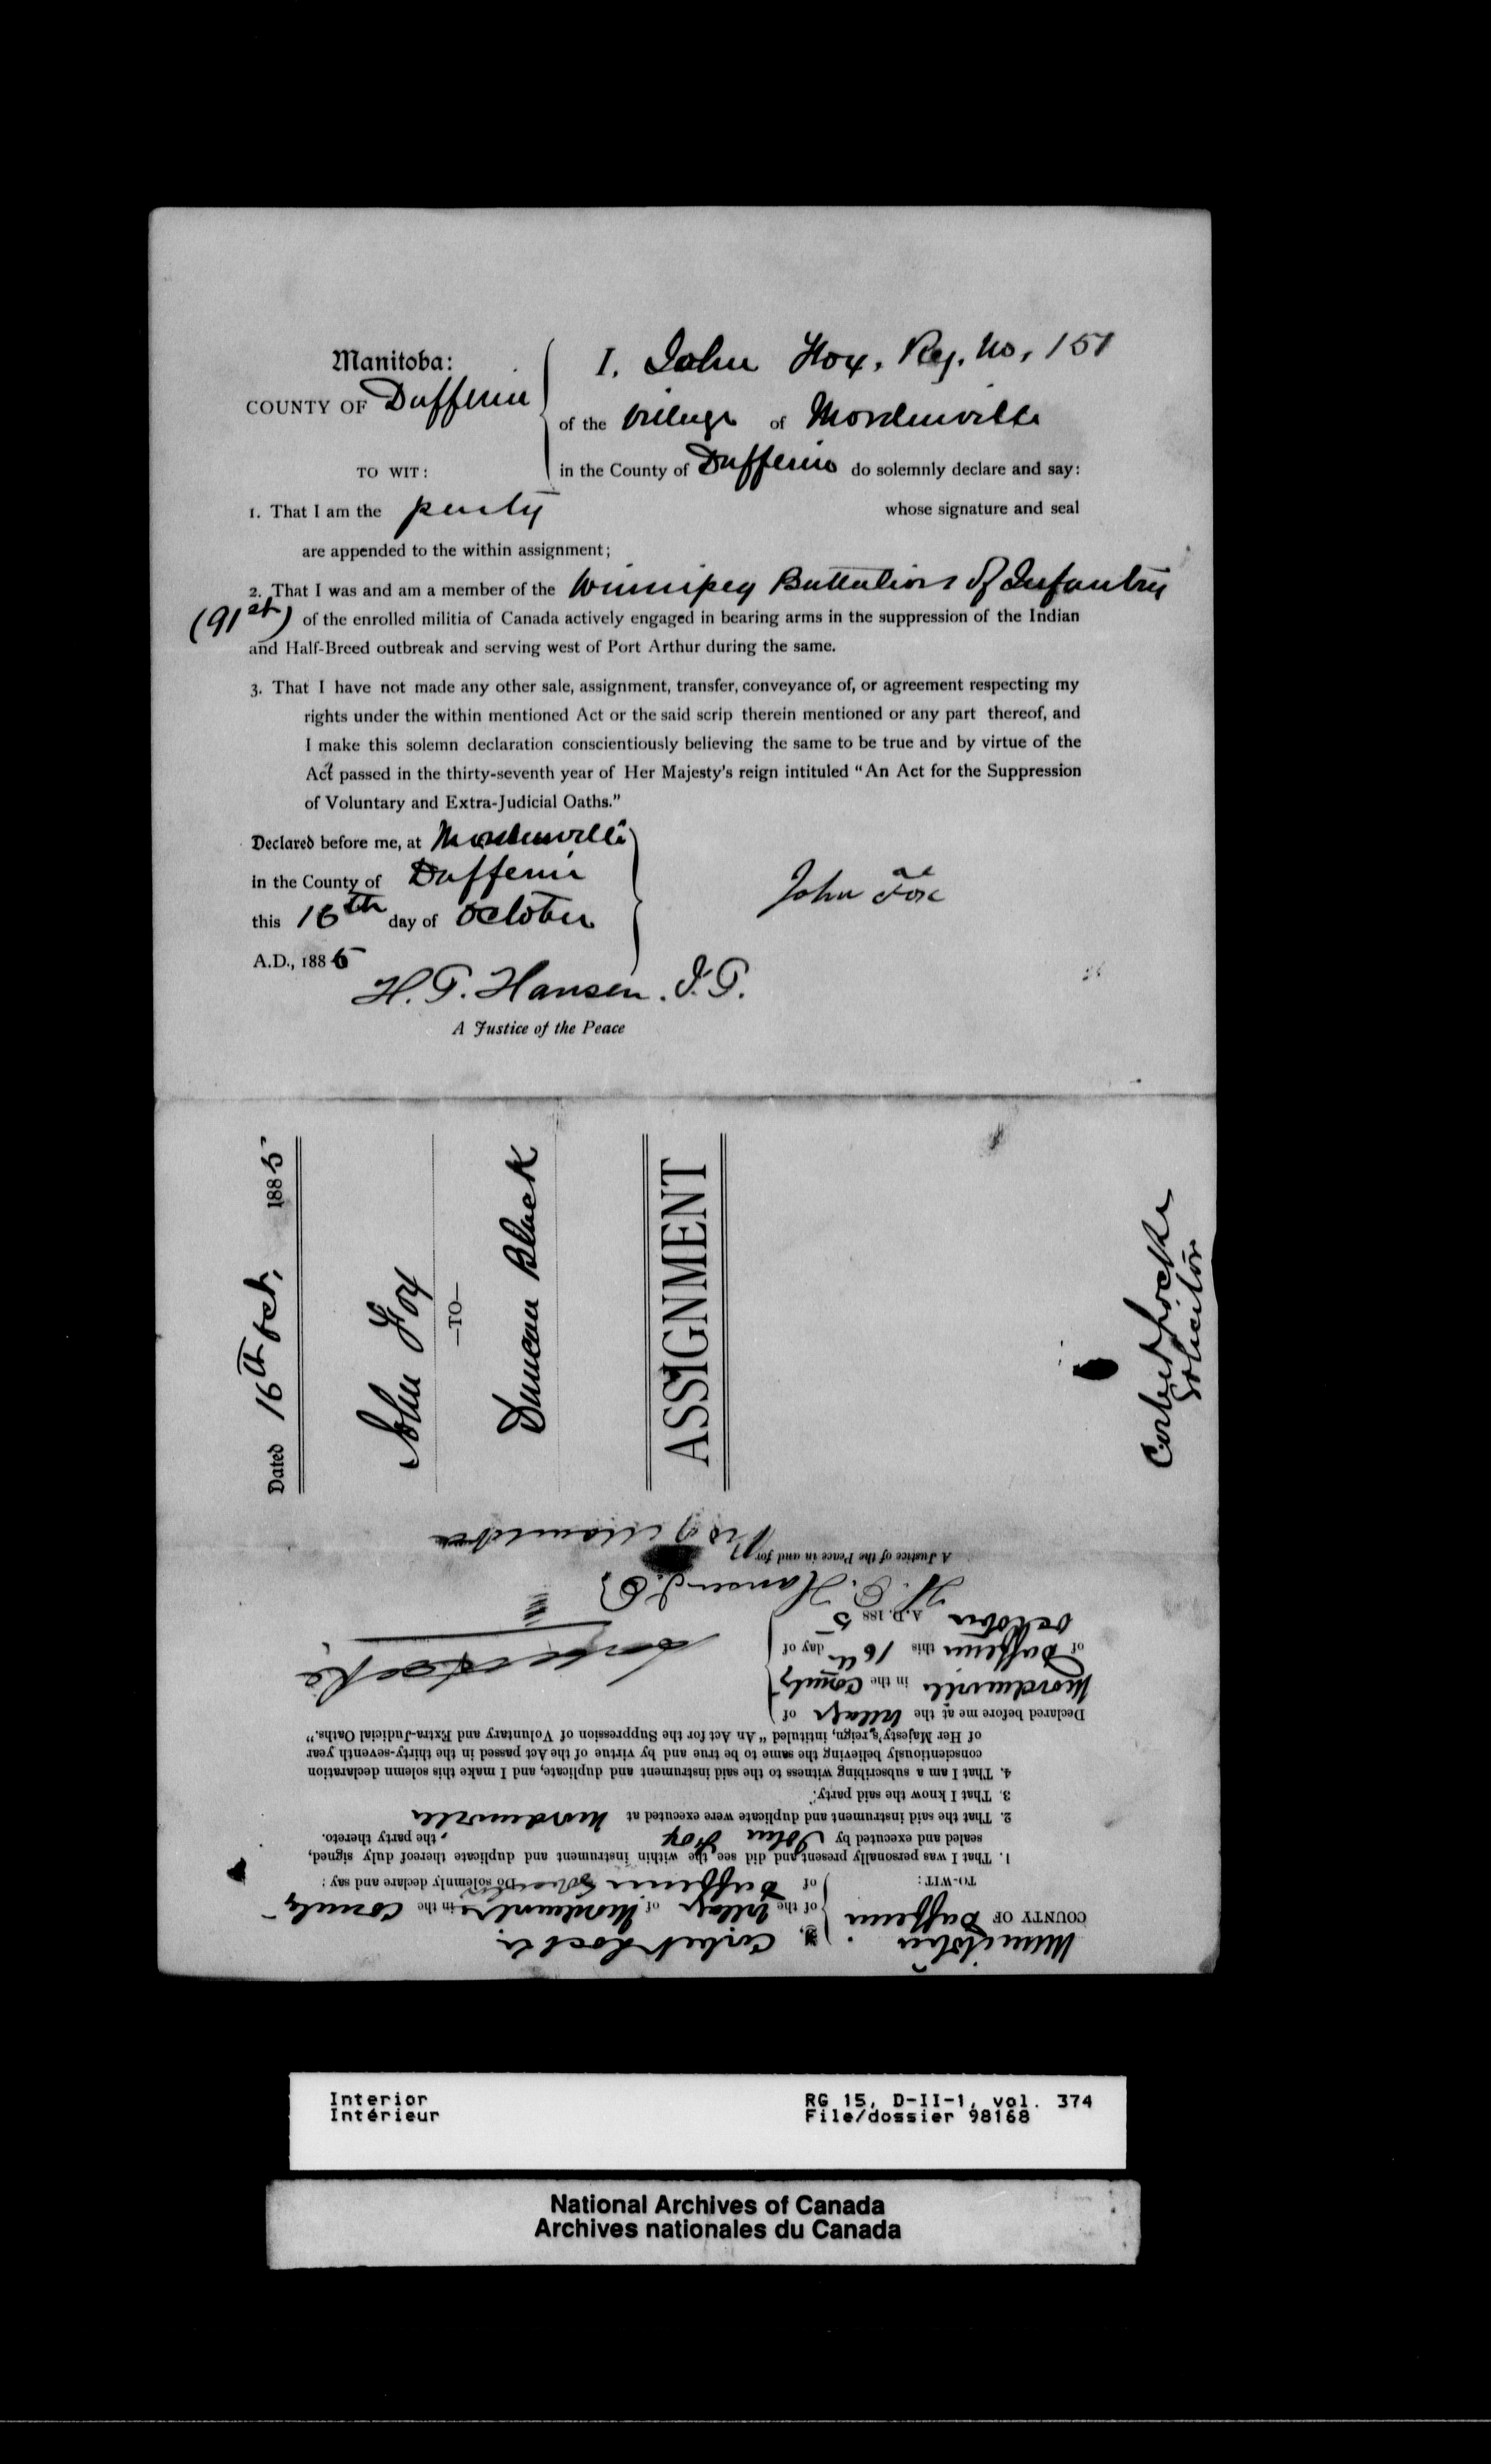 Manitoba:
COUNTY OF Dufferin
TO WIT:
I, John Fox, Reg. No, 151
of the Village of Mordenville
in the County of Dufferin do solemnly declare and say:
1. That I am the party whose signature and seal
are appended to the within assignment;
2. That I was and am a member of the Winnipeg Battalion of Infantry
(91st) of the enrolled militia of Canada actively engaged in bearing arms in the suppression of the Indian
and Half-Breed outbreak and serving west of Port Arthur during the same.
3. That I have not made any other sale, assignment, transfer, conveyance of, or agreement respecting my
rights under the within mentioned Act or the said scrip therein mentioned or any part thereof, and
I make this solemn declaration conscientiously believing the same to be true and by virtue of the
Act passed in the thirty-seventh year of Her Majesty's reign intituled "An Act for the Suppression
of Voluntary and Extra-Judicial Oaths."
Declared before me, at Mordenville
in the County of Dufferin
this 16th day of October
A.D., 1885
John Fox
H. P. Hansen. J. P.
A Justice of the Peace
Dated 16th Oct, 1885
John Fox
—TO—
Duncan Black
ASSIGNMENT
Corbet Locke
Solicitor
Manitoba
COUNTY OF Dufferin
TO-WIT:
I, Corbet Locke
of the Village of Mordenville in the County
of Dufferin Do solemnly declare and say:
1. That I was personally present and did see the within instrument and duplicate thereof duly signed,
sealed and executed by John Fox, the party thereto.
2. That the said instrument and duplicate were executed at Mordenville
3. That I know the said party.
4. That I am a subscribing witness to the said instrument and duplicate, and I make this solemn declaration
conscientiously believing the same to be true and by virtue of the Act passed in the thirty-seventh year
of Her Majesty's reign, intituled "An Act for the Suppression of Voluntary and Extra-Judicial Oaths."
Declared before me at the Village of
Mordenville in the County
of Dufferin this 16th day of
October A.D. 1885
Corbet Locke
H. P. Hansen J. P.
A Justice of the Peace in and for
Prov of Manitoba
Interior
Intérieur
RG 15, D-II-1, vol. 374
File/dossier 98168
National Archives of Canada
Archives nationales du Canada